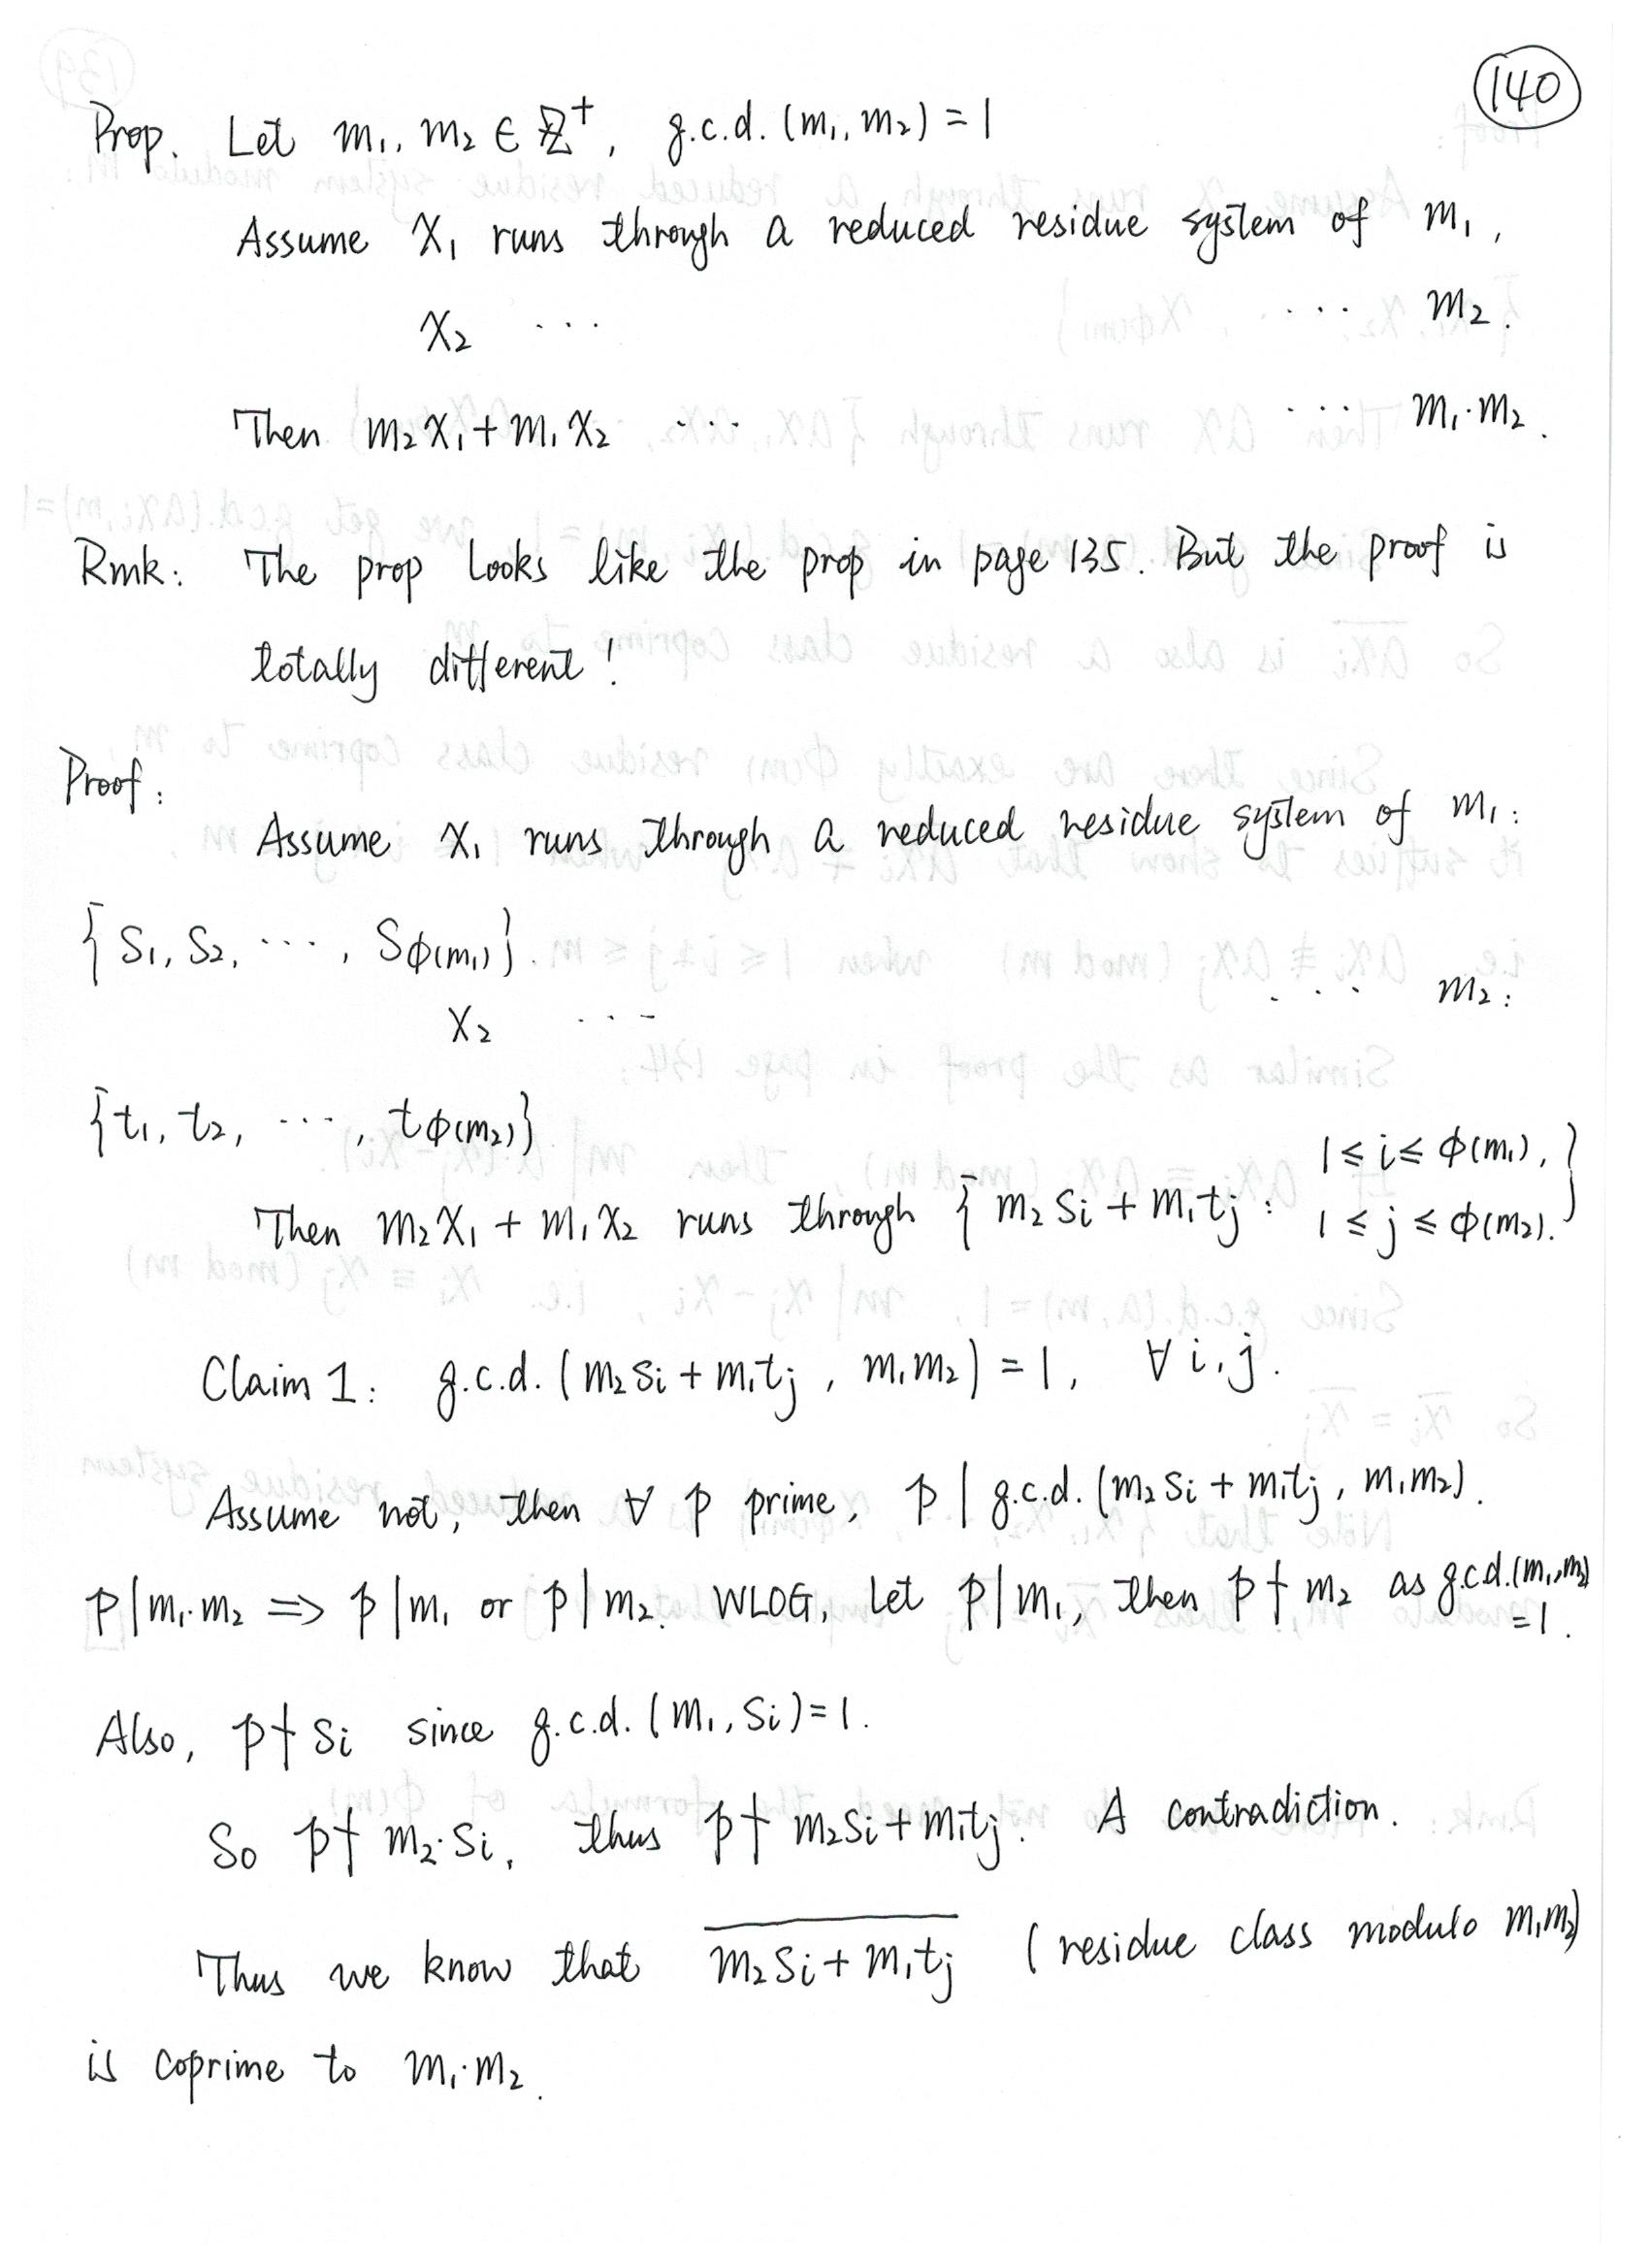 140
Prop. Let m₁, m₂ ∈ ℤ⁺, g.c.d. (m₁, m₂) = 1
Assume X₁ runs through a reduced residue system of m₁,
X₂ ... ... m₂.
Then m₂X₁ + m₁X₂ ... ... m₁·m₂.
Rmk: The prop looks like the prop in page 135. But the proof is
totally different!
Proof:
Assume X₁ runs through a reduced residue system of m₁:
{S₁, S₂, ..., S_ϕ(m₁)}.
X₂ ... ... m₂:
{t₁, t₂, ..., t_ϕ(m₂)}
Then m₂X₁ + m₁X₂ runs through { m₂Si + m₁tj : 1 ≤ i ≤ ϕ(m₁), 1 ≤ j ≤ ϕ(m₂). }
Claim 1: g.c.d. (m₂Si + m₁tj, m₁m₂) = 1, ∀ i, j.
Assume not, then ∀ p prime, p | g.c.d. (m₂Si + m₁tj, m₁m₂).
p | m₁·m₂ ⇒ p | m₁ or p | m₂. WLOG, let p | m₁, then p ∤ m₂ as g.c.d.(m₁,m₂) = 1.
Also, p ∤ Si since g.c.d. (m₁, Si) = 1.
So p ∤ m₂·Si, thus p ∤ m₂Si + m₁tj. A contradiction.
Thus we know that \overline{m₂Si + m₁tj} (residue class modulo m₁m₂)
is coprime to m₁·m₂.